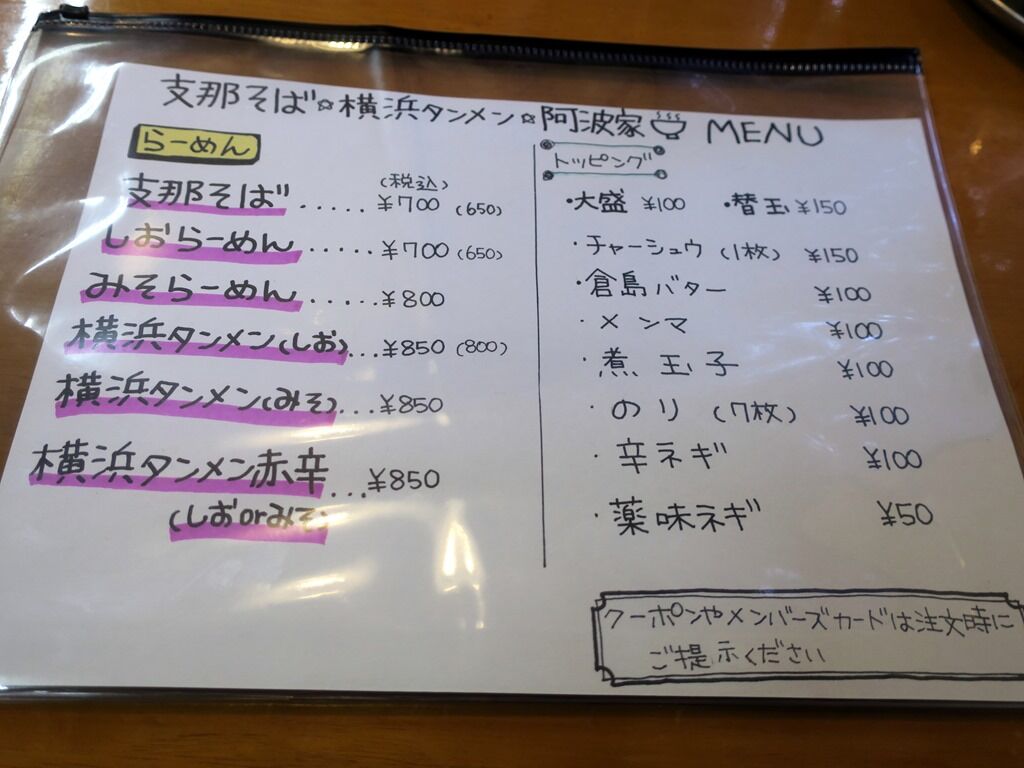 支那そば☆横浜タンメン☆阿波家 MENU
らーめん
(税込)
支那そば.....¥700 (650)
しおらーめん.....¥700 (650)
みそらーめん.....¥800
横浜タンメン(しお)...¥850 (800)
横浜タンメン(みそ)...¥850
横浜タンメン赤辛...¥850
(しおorみそ)
トッピング
・大盛 ¥100 ・替玉 ¥150
・チャーシュウ (1枚) ¥150
・倉島バター ¥100
・メンマ ¥100
・煮玉子 ¥100
・のり (7枚) ¥100
・辛ネギ ¥100
・薬味ネギ ¥50
クーポンやメンバーズカードは注文時に
ご提示ください